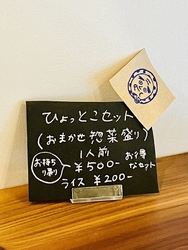 ひょっとこセット
(おまかせ惣菜盛り)
1人前
お持ち
り寄り
¥500-
お得
なセット
ライス ¥200-